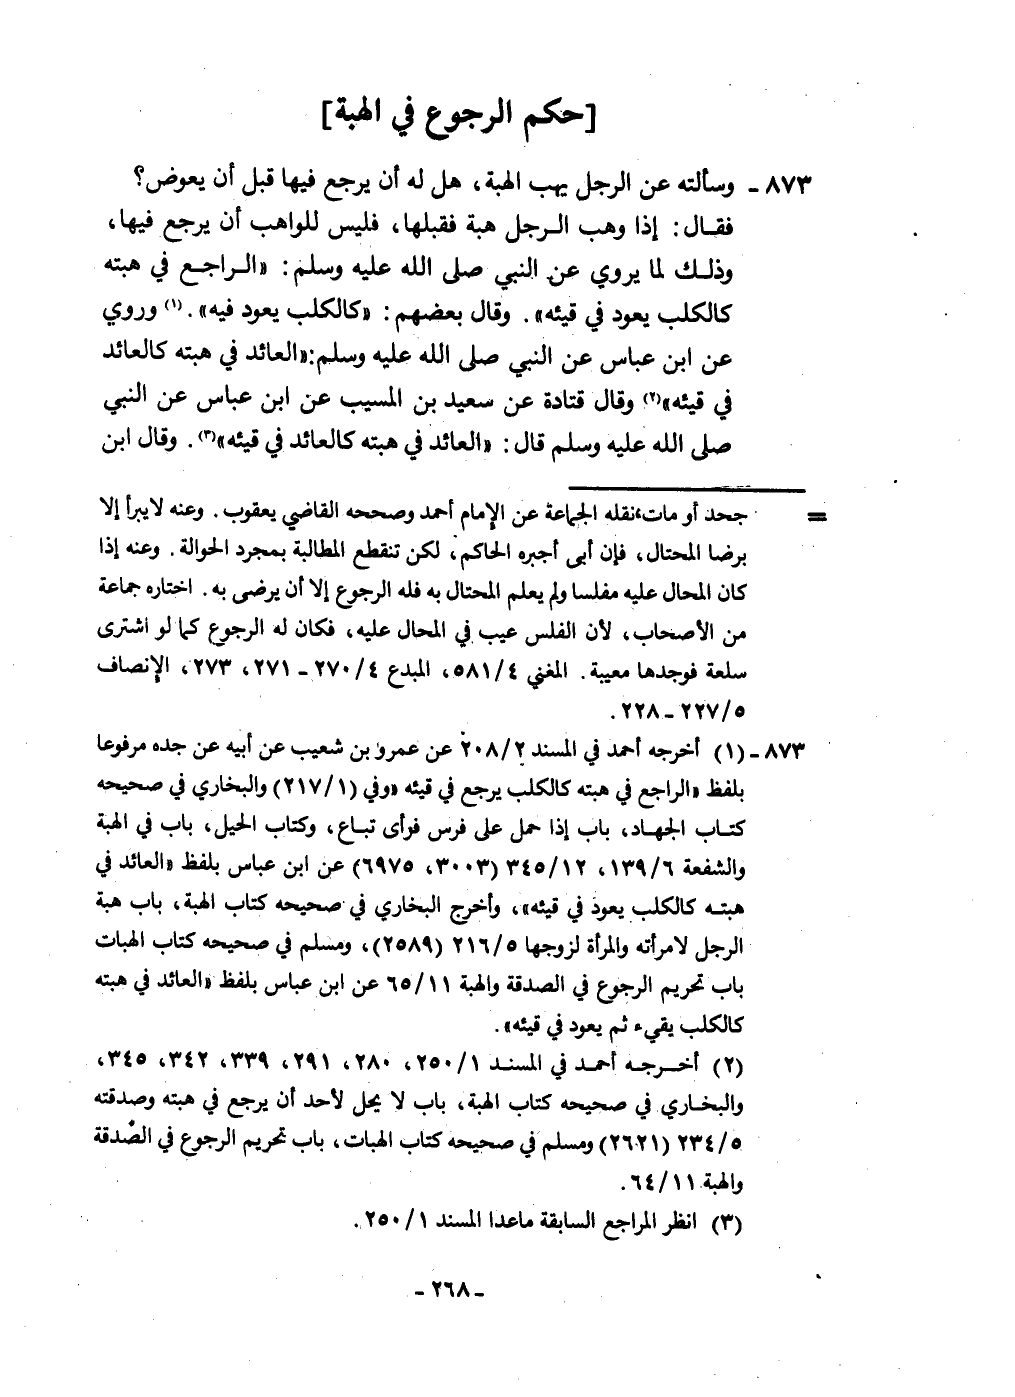 [حكم الرجوع في الهبة]
٨٧٣ - وسألته عن الرجل يهب الهبة، هل له أن يرجع فيها قبل أن يعوض؟
فقال: إذا وهب الرجل هبة فقبلها، فليس للواهب أن يرجع فيها،
وذلك لما يروي عن النبي صلى الله عليه وسلم: «الراجع في هبته
كالكلب يعود في قيئه». وقال بعضهم: «كالكلب يعود فيه».(١) وروي
عن ابن عباس عن النبي صلى الله عليه وسلم:«العائد في هبته كالعائد
في قيئه»(٢) وقال قتادة عن سعيد بن المسيب عن ابن عباس عن النبي
صلى الله عليه وسلم قال: «العائد في هبته كالعائد في قيئه»(٣). وقال ابن
= جحد أو مات، نقله الجماعة عن الإمام أحمد وصححه القاضي يعقوب. وعنه لايبرأ إلا
برضا المحتال، فإن أبى أجبره الحاكم، لكن تنقطع المطالبة بمجرد الحوالة. وعنه إذا
كان المحال عليه مفلسا ولم يعلم المحتال به فله الرجوع إلا أن يرضى به. اختاره جماعة
من الأصحاب، لأن الفلس عيب في المحال عليه، فكان له الرجوع كما لو اشترى
سلعة فوجدها معيبة. المغني ٥٨١/٤، المبدع ٢٧٠/٤ - ٢٧١، ٢٧٣، الإنصاف
٢٢٧/٥ - ٢٢٨.
٨٧٣ - (١) أخرجه أحمد في المسند ٢٠٨/٢ عن عمرو بن شعيب عن أبيه عن جده مرفوعا
بلفظ «الراجع في هبته كالكلب يرجع في قيئه «وفي (٢١٧/١) والبخاري في صحيحه
كتاب الجهاد، باب إذا حمل على فرس فرأى تباع، وكتاب الحيل، باب في الهبة
والشفعة ١٣٩/٦، ٣٤٥/١٢ (٣٠٠٣، ٦٩٧٥) عن ابن عباس بلفظ «العائد في
هبته كالكلب يعود في قيئه»، وأخرج البخاري في صحيحه كتاب الهبة، باب هبة
الرجل لامرأته والمرأة لزوجها ٢١٦/٥ (٢٥٨٩)، ومسلم في صحيحه كتاب الهبات
باب تحريم الرجوع في الصدقة والهبة ٦٥/١١ عن ابن عباس بلفظ «العائد في هبته
كالكلب يقيء ثم يعود في قيئه».
(٢) أخرجه أحمد في المسند ٢٥٠/١، ٢٨٠، ٢٩١، ٣٣٩، ٣٤٢، ٣٤٥،
والبخاري في صحيحه كتاب الهبة، باب لا يحل لأحد أن يرجع في هبته وصدقته
٢٣٤/٥ (٢٦٢١) ومسلم في صحيحه كتاب الهبات، باب تحريم الرجوع في الصدقة
والهبة ٦٤/١١.
(٣) انظر المراجع السابقة ماعدا المسند ٢٥٠/١.
- ٢٦٨ -